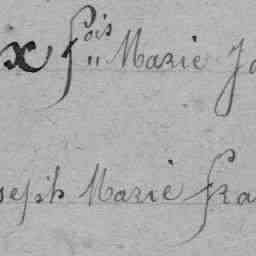 x fois " Marie Jo
oseph Marie fra